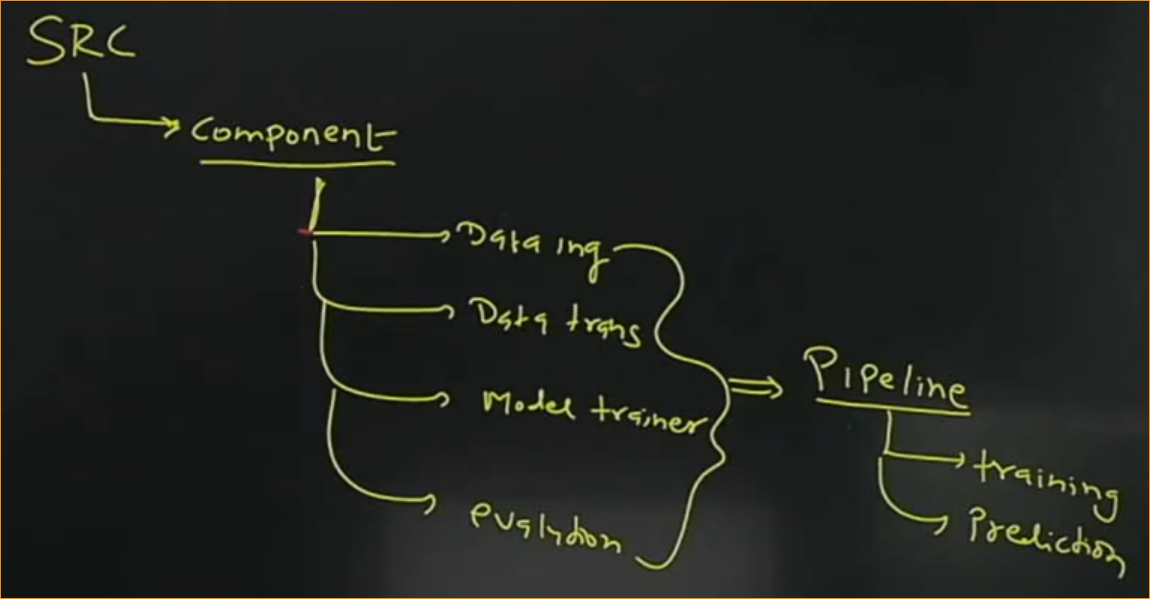 SRC
Component
Data ing
Data trans
Model trainer
evalution
Pipeline
training
Prediction